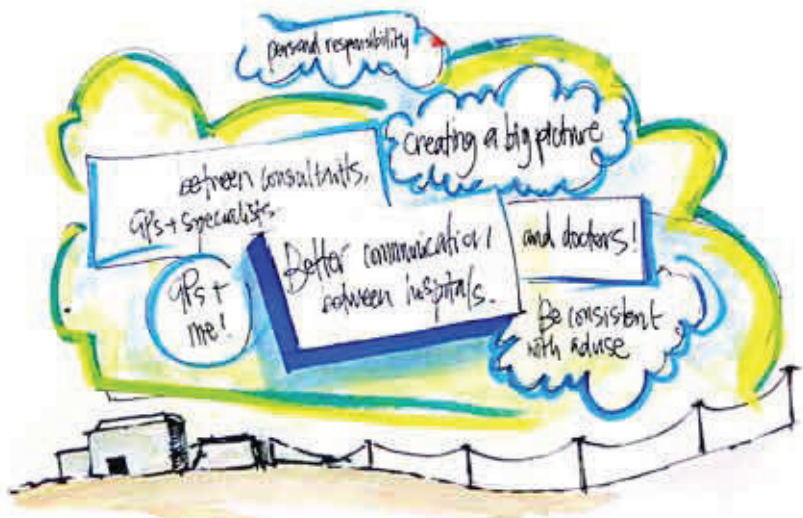 personal responsibility
creating a big picture
between consultants,
GPs + specialists.
Better communication
between hospitals.
and doctors!
GPs +
me!
Be consistent
with advise